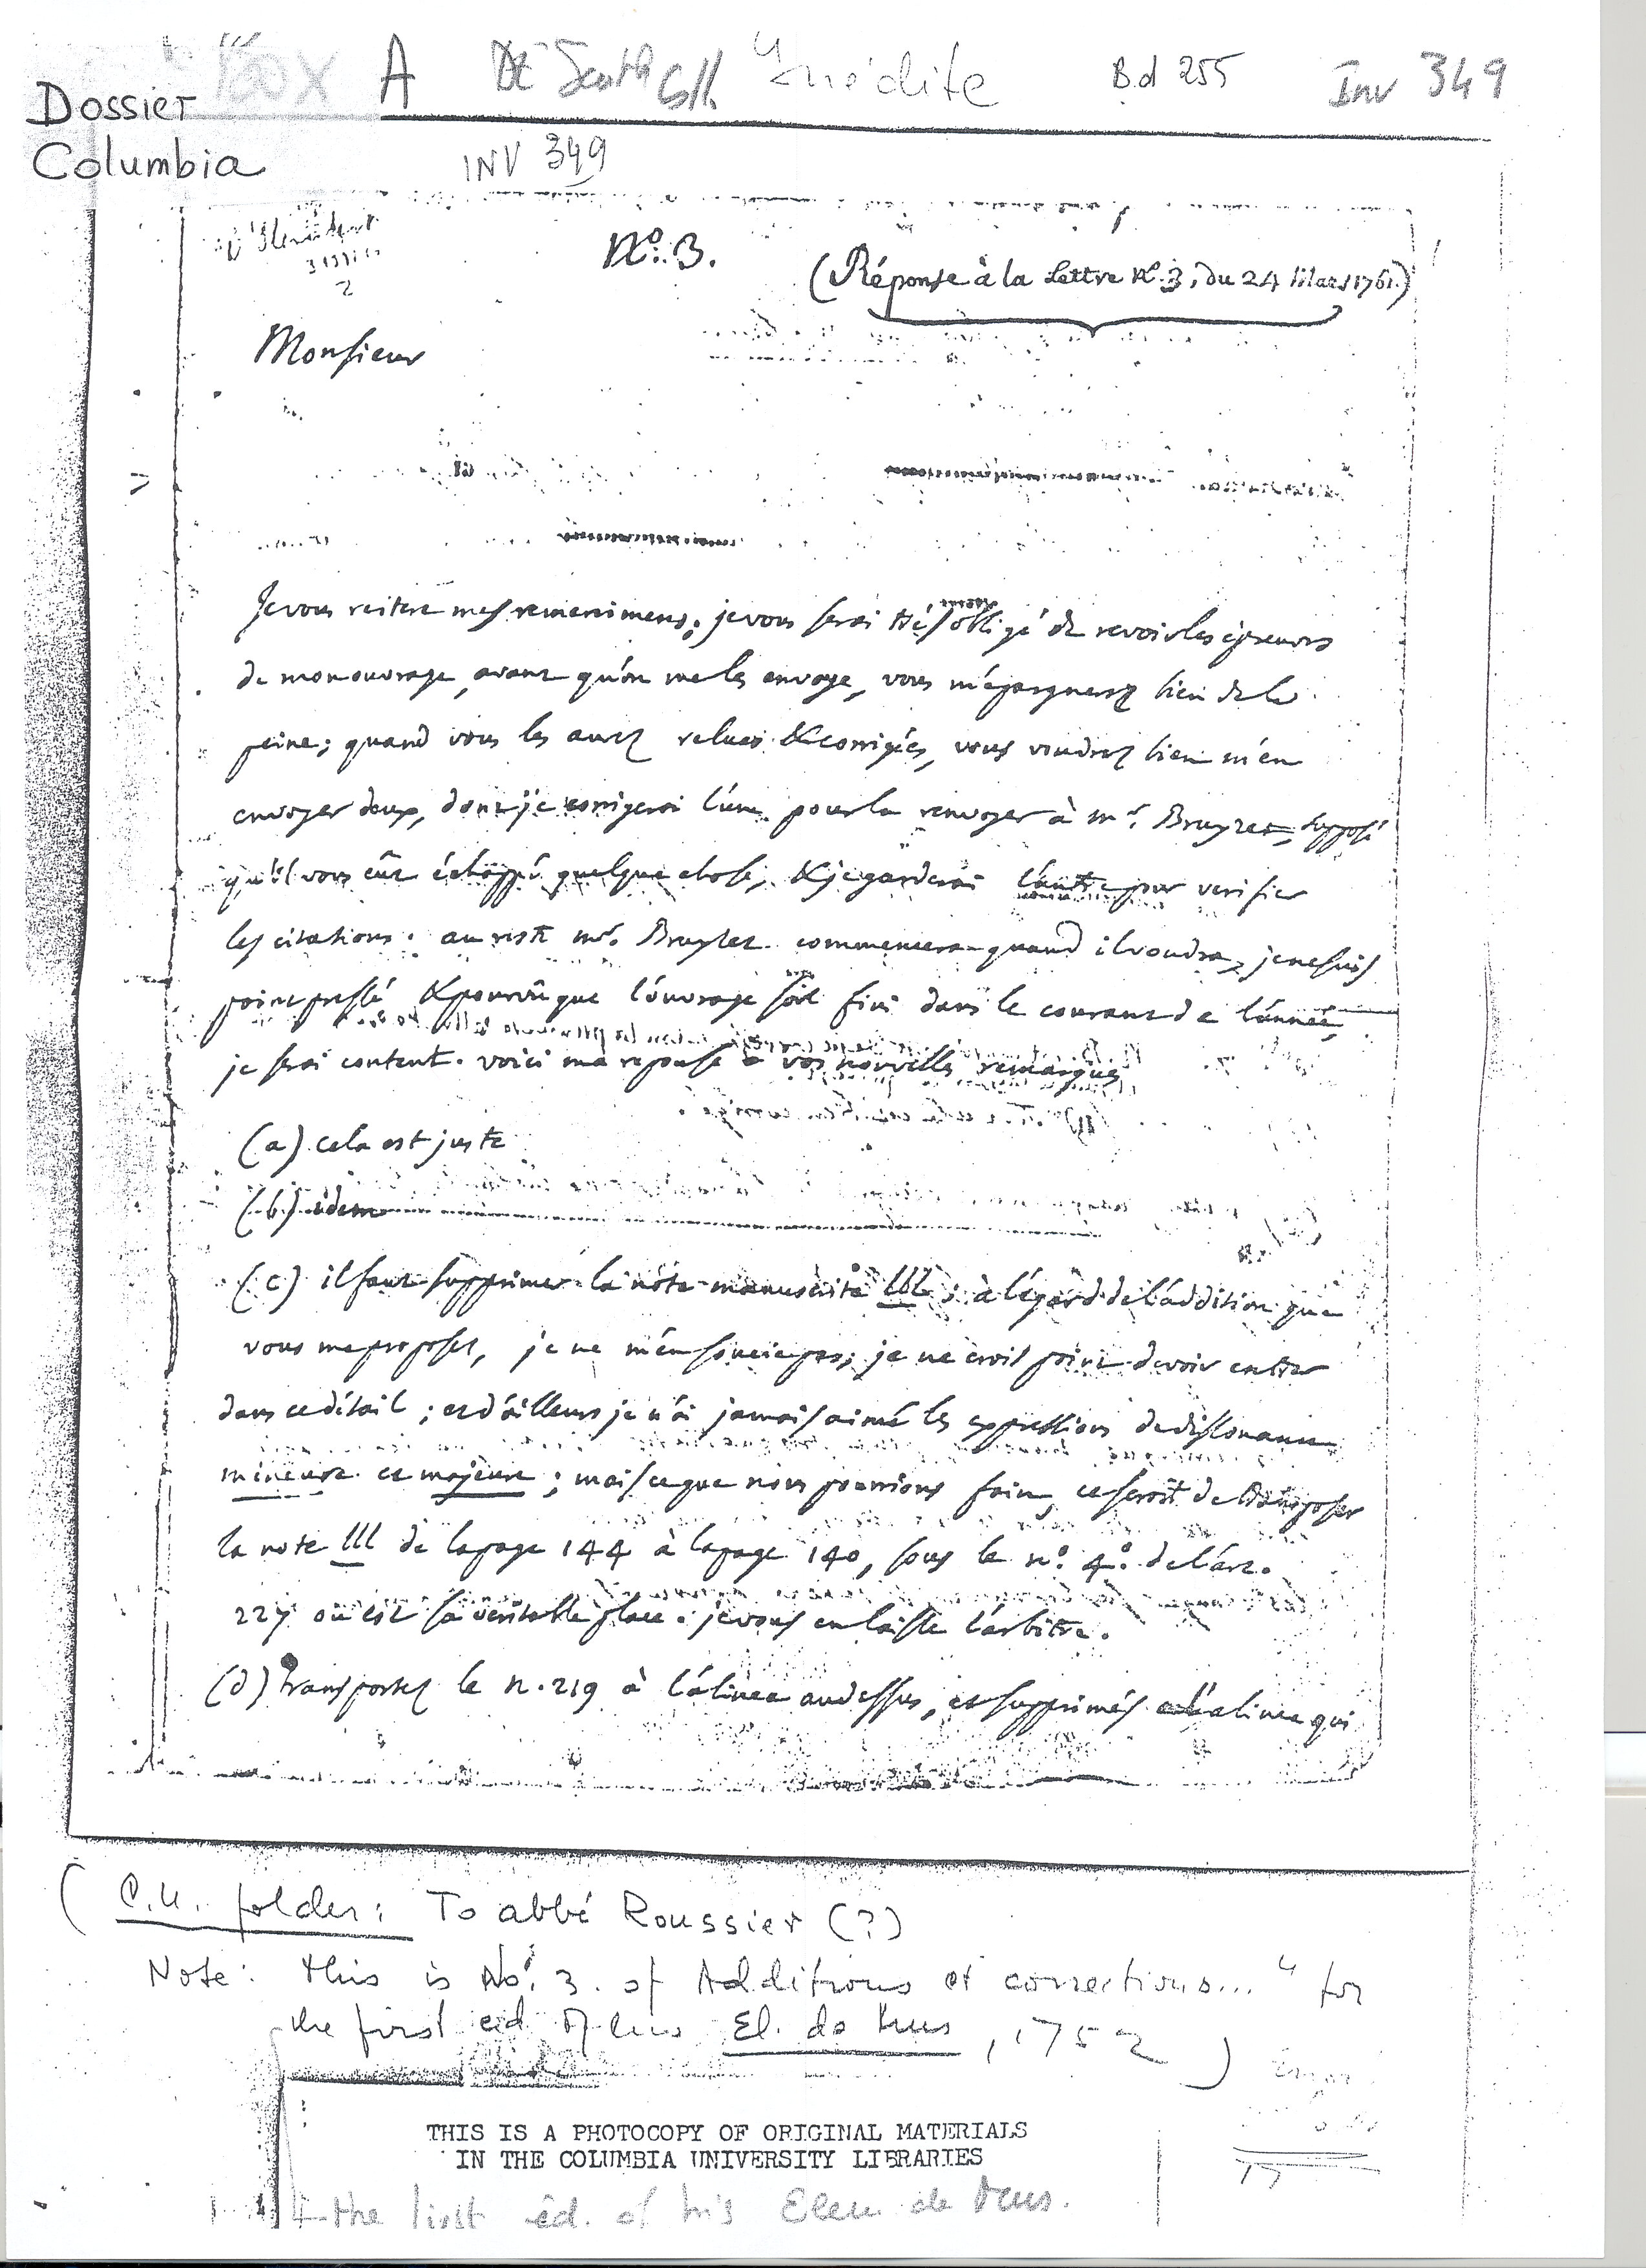 Box A DE Smith Coll. Inédite B.d 255 Inv 349
Dossier
Columbia
INV 349
N.º 3.
(Réponse à la Lettre Nº. 3, du 24 Mars 1761.)
Monsieur
Je vous reitere mes remercimens; je vous serai très obligé de revoir les épreuves
de mon ouvrage, avant qu'on me les envoye, vous m'épargnerez bien de la
peine; quand vous les aurez relues & corrigées, vous voudrez bien m'en
envoyer deux, dont je corrigerai l'une pour la renvoyer à mr. Bruyset, supposé
qu'il vous eût échappé quelque chose, & je garderai l'autre pour verifier
les citations. au reste mr. Bruyset commencera quand il voudra, je ne suis
point pressé & pourvû que l'ouvrage soit fini dans le courant de l'année,
je serai content. voici ma reponse à vos nouvelles remarques
(a) cela est juste
(b) idem
(c) il faut supprimer la note manuscrite lll; à l'égard de l'addition que
vous me proposez, je ne m'en soucie pas; je ne crois point devoir entrer
dans ce détail; et d'ailleurs je n'ai jamais aimé les expressions de dissonance
mineure et majeure; mais ce que nous pourrions faire, ce seroit de transposer
la note lll de la page 144 à la page 140, sous le nº. 4º. de l'art.
227 où est sa véritable place. je vous en laisse l'arbitre.
(d) transportez le n. 219 à l'alinea au dessus, et supprimés l'alinea qui
(C.U. folder: To abbé Roussier (?)
Note: this is No. 3. of Additions et corrections..." for
the first ed. of his El. de Mus, 1752)
THIS IS A PHOTOCOPY OF ORIGINAL MATERIALS
IN THE COLUMBIA UNIVERSITY LIBRARIES
the first ed. of his Elem de Mus.